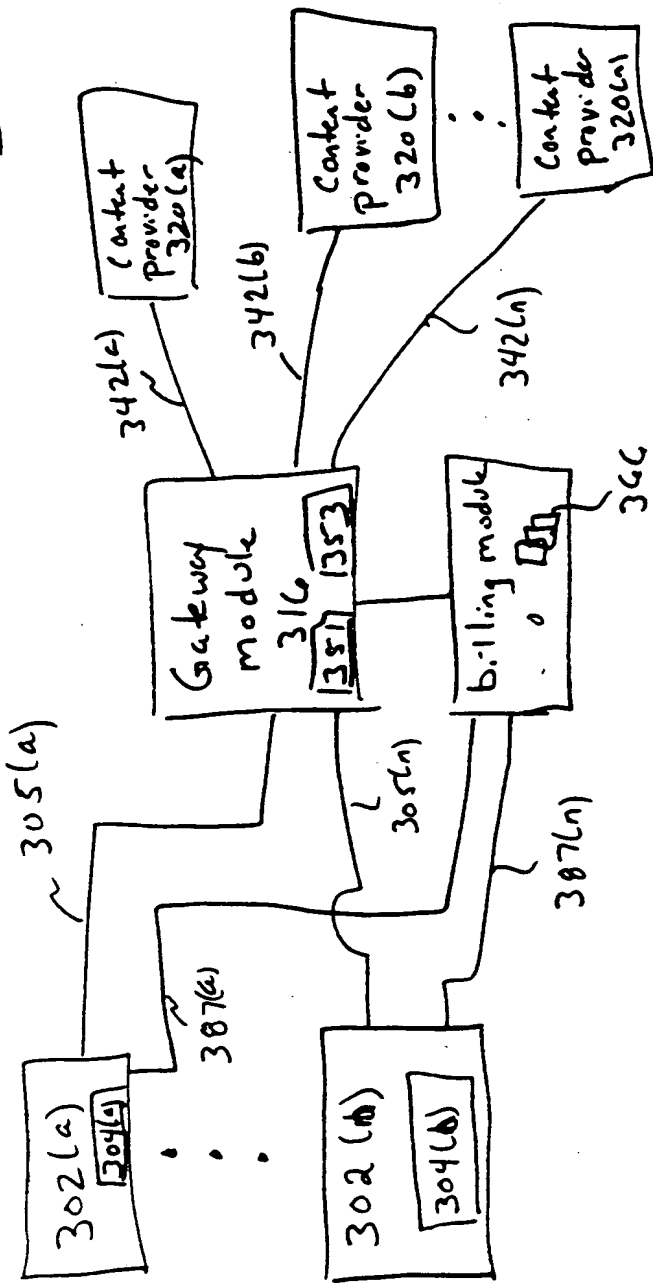 305(a)
302(a)
304(a)
387(a)
302(
304(
305(n)
387(n)
Gateway
module
316
1351
1353
billing module
366
342(a)
342(b)
342(n)
Content
provider
320(a)
Content
provider
320(b)
Content
provider
320(n)